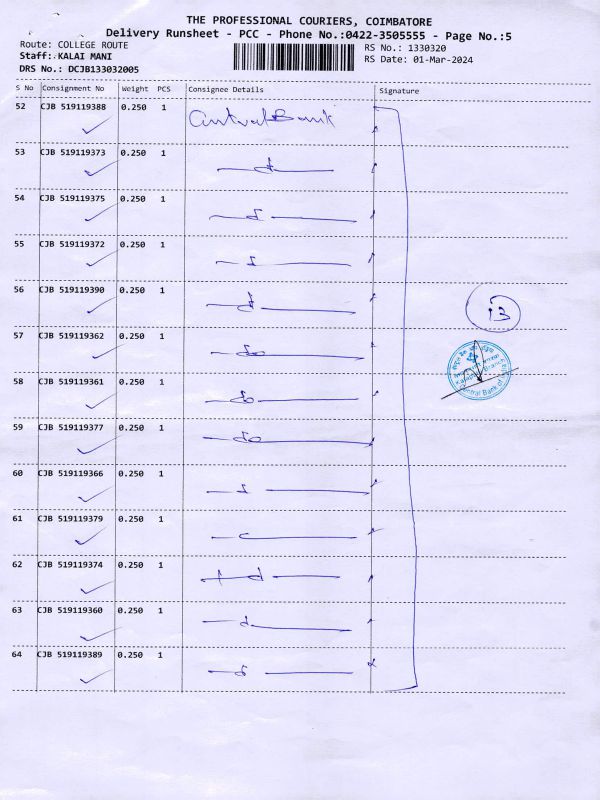 THE PROFESSIONAL COURIERS, COIMBATORE
Delivery Runsheet - PCC - Phone No.:0422-3505555 - Page No.:5
Route: COLLEGE ROUTE
RS No.: 1330320
Staff: KALAI MANI
RS Date: 01-Mar-2024
DRS No.: DCJB133032005
S No Consignment No Weight PCS Consignee Details Signature
52 CJB 519119388 0.250 1 Central Bank
53 CJB 519119373 0.250 1
54 CJB 519119375 0.250 1
55 CJB 519119372 0.250 1
56 CJB 519119390 0.250 1
13
57 CJB 519119362 0.250 1 do
58 CJB 519119361 0.250 1 do
Central Bank of
59 CJB 519119377 0.250 1 do
60 CJB 519119366 0.250 1
61 CJB 519119379 0.250 1
62 CJB 519119374 0.250 1
63 CJB 519119360 0.250 1
64 CJB 519119389 0.250 1